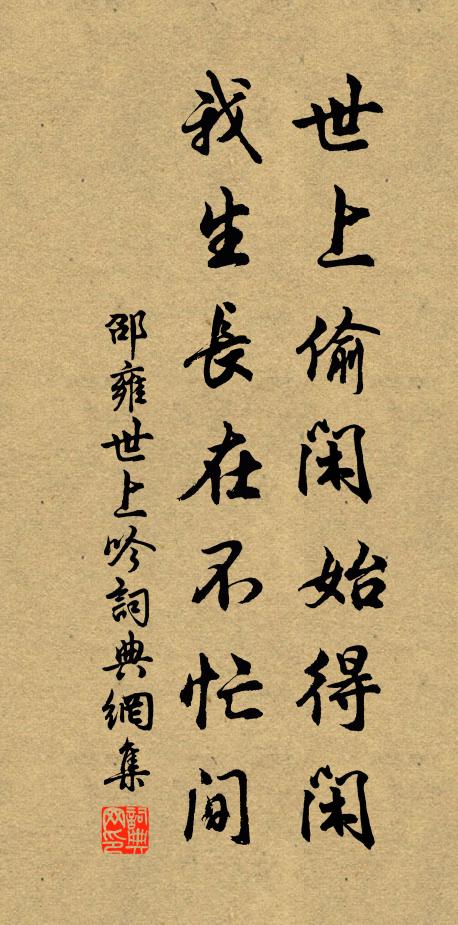 世上偷闲始得闲
我生長在不忙间
邵雍世上吟詞典網集
詞典网印